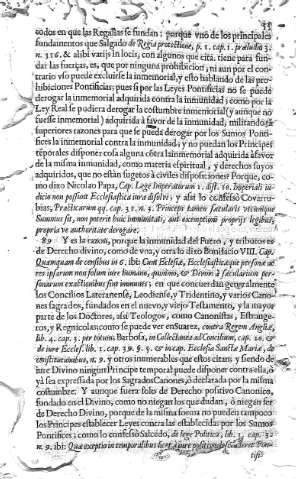 todos en que las Regalias se fundan: porque vno de los principales
fundamentos que Salgado de Regia protectione, p. 1. cap. 1. præludio 3.
n. 316, & alibi varijs in locis, con algunos que cita, tiene para fundar
las fuerças, es, que por ninguna prohibicion, ni aun por el contrario
vso puede excluirse la inmemorial, y esto hablando de las prohibiciones
Pontificias; pues si por las Leyes Pontificias no se puede
derogar la inmemorial adquirida contra la inmunidad; como por la
Ley Real se pudiera derogar la costumbre inmemorial (y aunque no
fuesse inmemorial) adquirida à favor de la inmunidad; militando
superiores razones para que se pueda derogar por los Sumos Pontifices
la inmemorial contra la inmunidad, y no puedan los Principes
temporales disponer cosa alguna cõtra la inmemorial adquirida à favor
de la misma inmunidad, como materia espiritual, y derechos suyos
adquiridos, que no están sugetos à civiles disposiciones? Porque, como
dixo Nicolao Papa, Cap. Lege Imperatorum 1. dist. 10. Imperiali iudicio
non possunt Ecclesiastica iura dissolvi; y assi lo confessò Covarrubias,
Practicarum qq. cap. 31. n. 4. Princeps tamen sæcularis vtcumque
Summus sit, non poterit huic immunitati, aut exemptioni proprijs legibus,
propria ve authoritate derogare.
89 Y es la razon, porque la inmunidad del Fuero, y tributos es
de Derecho divino, como de vna, y otra lo dixo Bonifacio VIII. Cap.
Quamquam de censibus in 6. ibi: Cum Ecclesiæ, Ecclesiasticæque personæ ac
res ipsarum non solum iure humano, quinimo, & Divino à sæcularium personarum
exactionibus sint immunes; en que concuerdan generalmente
los Concilios Lateranense, Leodiense, y Tridentino, y varios Canones
sagrados, fundados en el nuevo, y viejo Testamento, y la mayor
parte de los Doctores, assi Teologos, como Canonistas, Estrangeros,
y Regnicolas; como se puede ver en Suarez, contra Regem Angliæ,
lib. 4. cap. 3. per totum. Barbosa, in Collectanea ad Concilium, cap. 20. &
de iure Eccles. lib. 1. cap. 39. §. 5. & in cap. Ecclesia Sanctæ Mariæ, de
constitutionibus, n. 9. y otros innumerables que estos citan; y siendo de
iure Divino ningun Principe temporal puede disponer contra ella, ò
ya sea expressada por los Sagrados Canones, ò declarada por la misma
costumbre. Y aunque fuera solo de Derecho positivo Canonico,
fundado en el Divino, como no niegan los que dudan, ò niegan ser
de Derecho Divino, porque de la misma forma no pueden tampoco
los Principes establecer Leyes contra las establecidas por los Sumos
Pontifices; como lo confessò Salcedo, de lege Politica, lib. 1. cap. 32
n. 9. ibi: